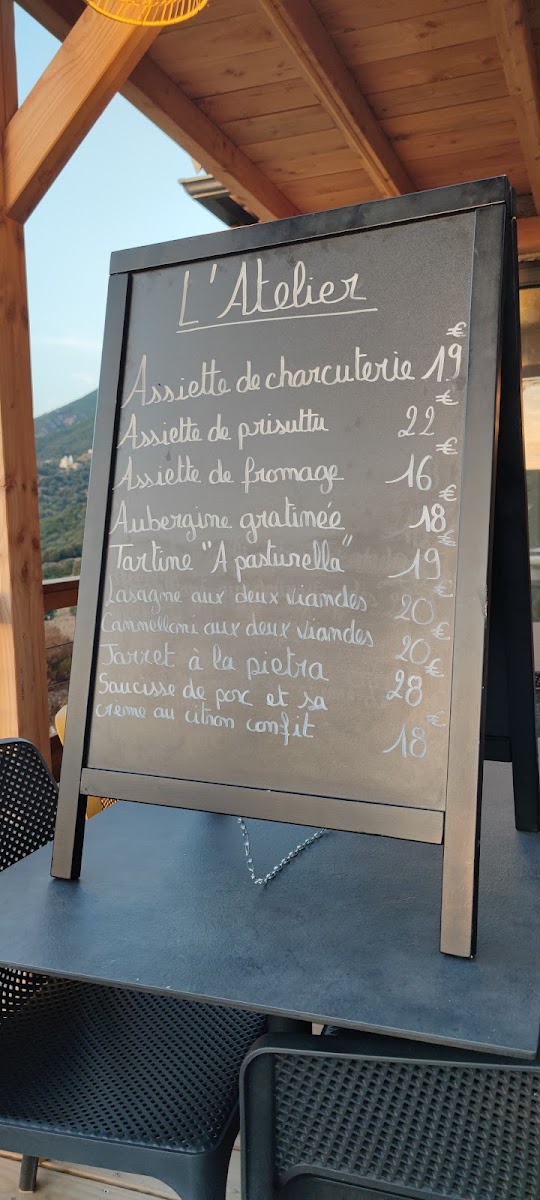 L'Atelier
Assiette de charcuterie 19€
Assiette de prisuttu 22€
Assiette de fromage 16€
Aubergine gratinée 18€
Tartine "A pasturella" 19€
Lasagne aux deux viandes 20€
Cannelloni aux deux viandes 20€
Jarret à la pietra 28€
Saucisse de porc et sa
crème au citron confit 18€